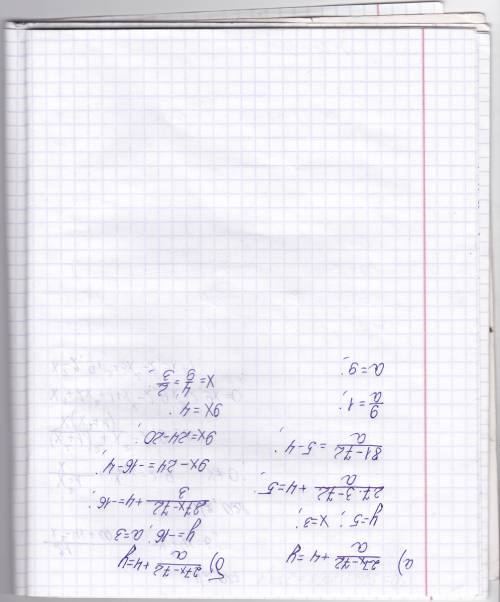 а) (27x-72)/a + 4 = y
y=5; x=3;
(27·3-72)/a + 4 = 5;
(81-72)/a = 5-4;
9/a = 1;
a = 9;
б) (27x-72)/a + 4 = y
y=-16; a=3
(27x-72)/3 + 4 = -16;
9x-24 = -16-4;
9x = 24-20;
9x = 4;
x = 4/9 = 2/3;